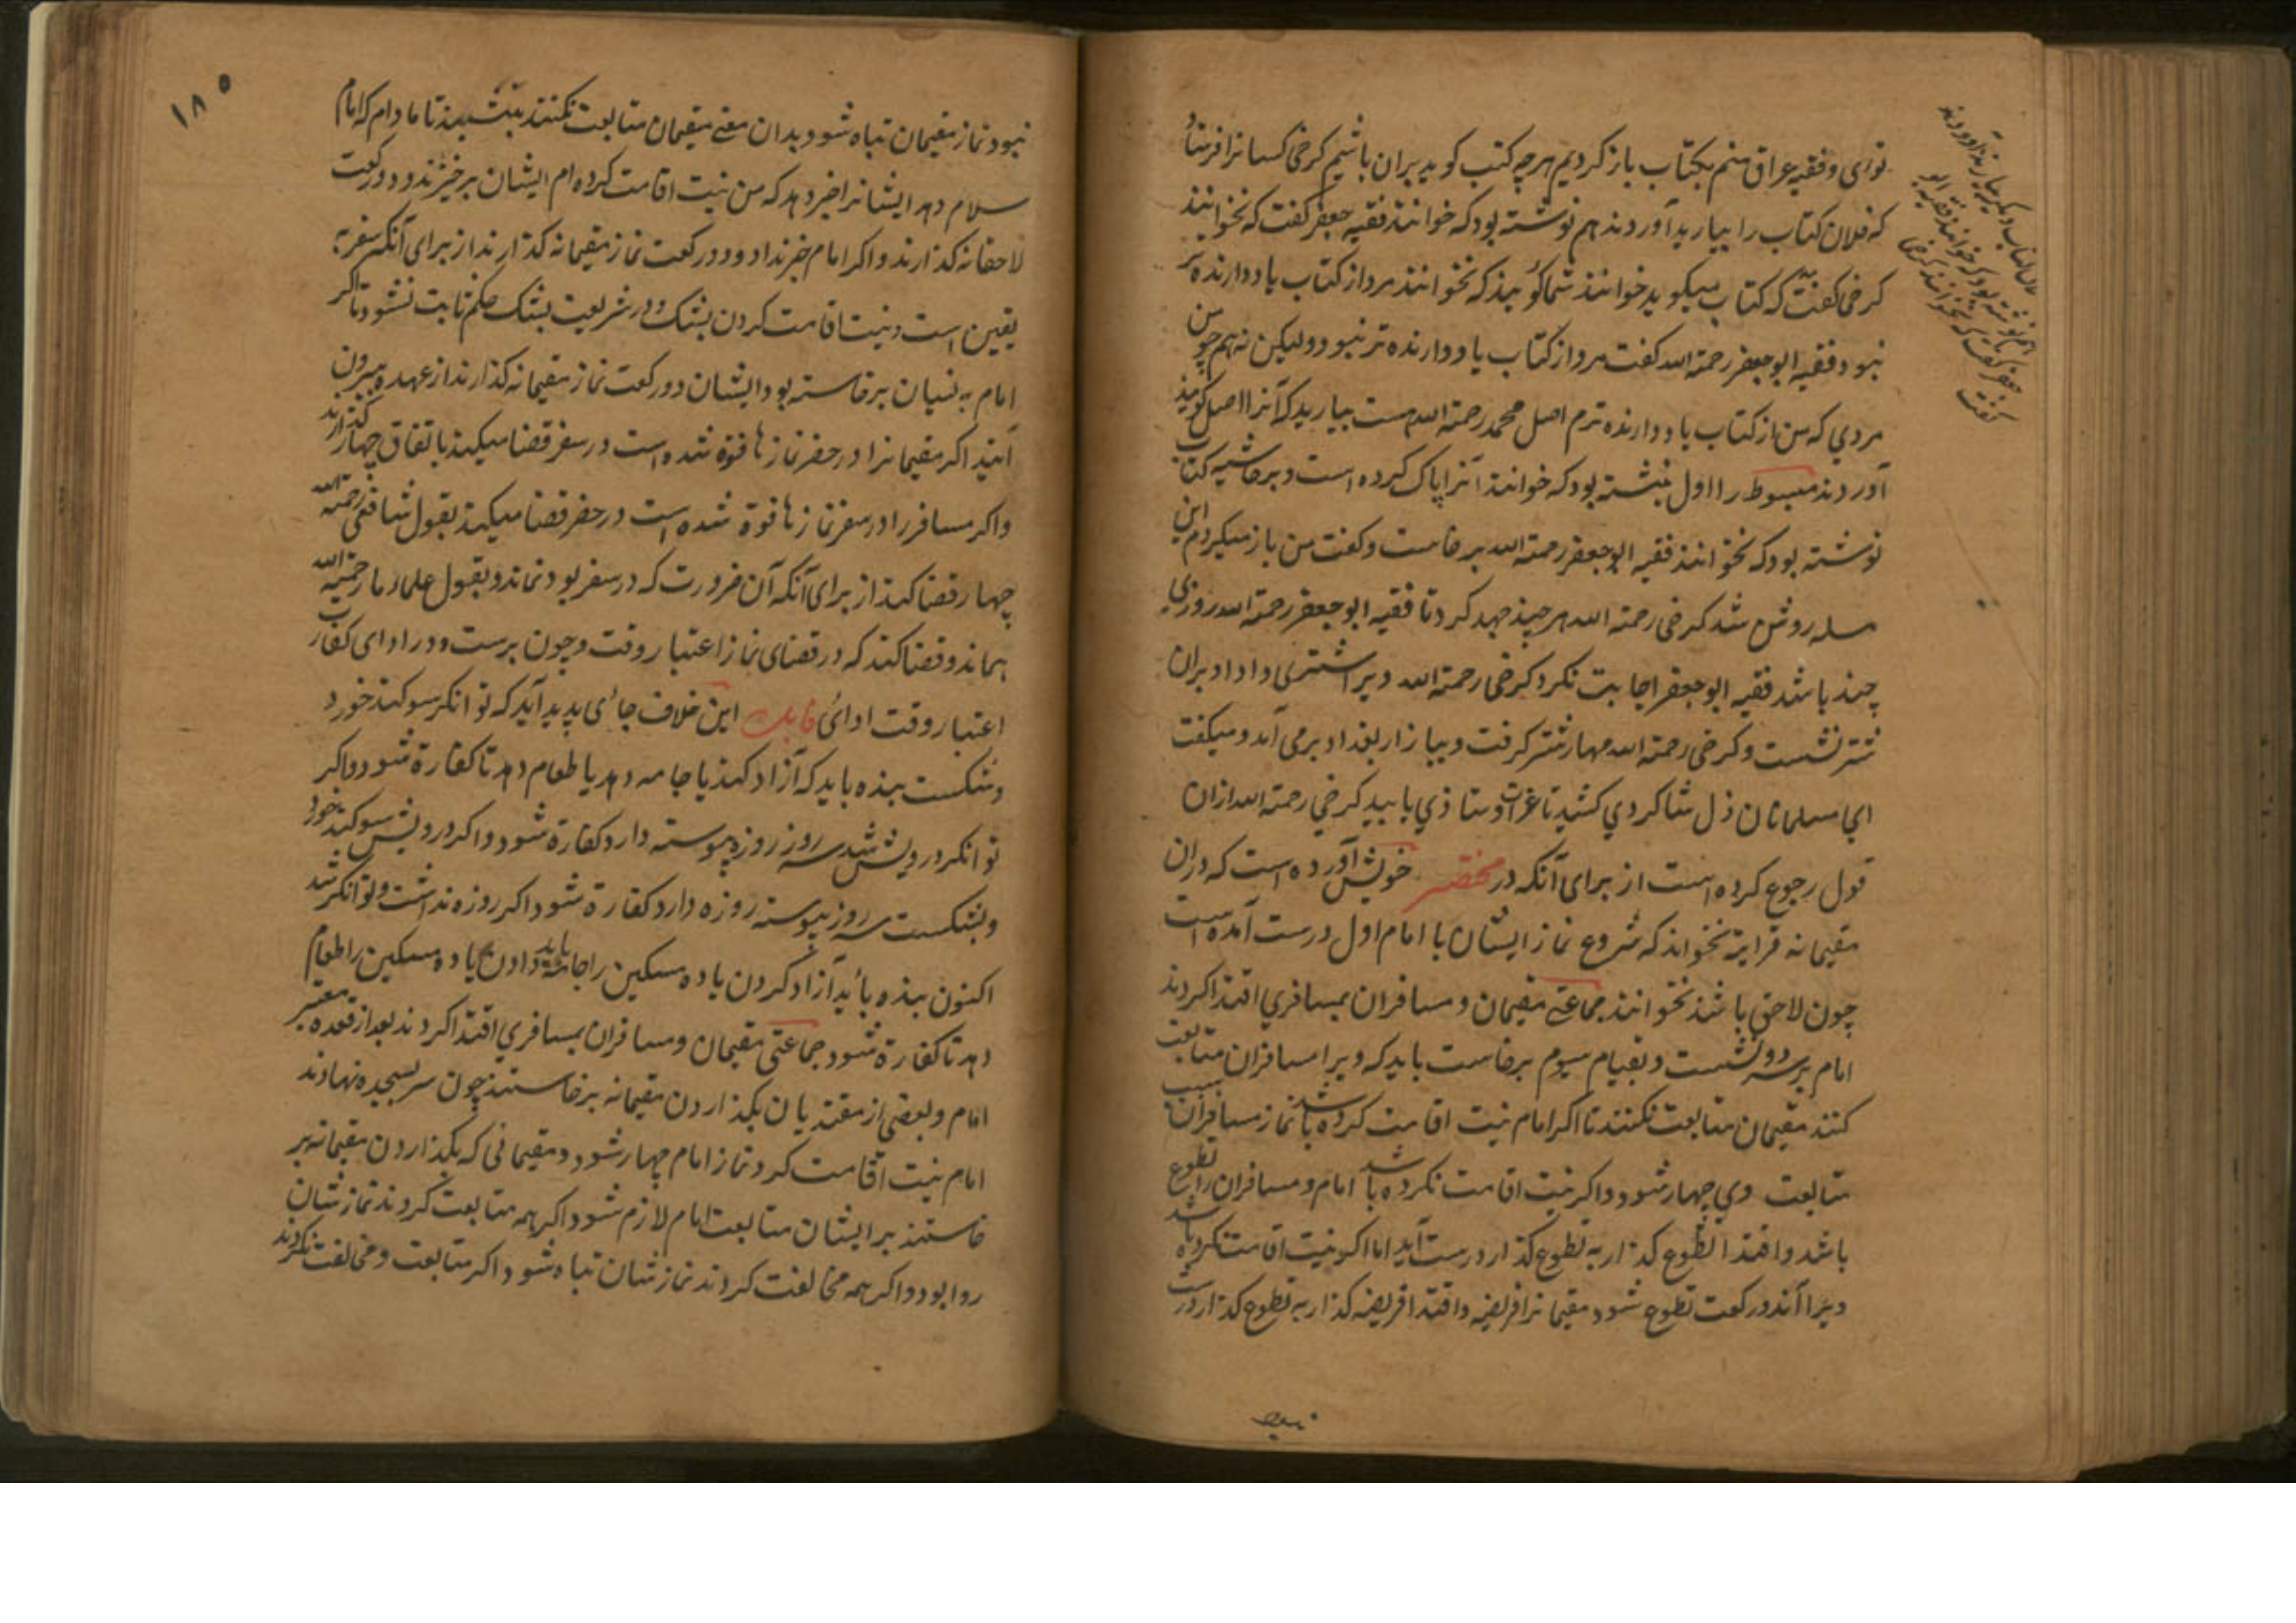 توای و فقیه عراق منم بکتاب باز کردیم هرچه کتب کوید بران باشیم کرخی کسانرا فرستاد
که فلان کتاب را بیارید آوردند هم نوشته بود که خوانند فقیه جعفر کفت که نخوانند
کرخی کفت که کتاب میکوید خوانند شما کوئیند که نخوانند مرد از کتاب یاد دارنده تر
نبود فقیه ابو جعفر رحمة الله کفت مرد از کتاب یاد دارنده تر نبود ولیکن نه هم چو من
مردی که من از کتاب یاد دارنده ترم اصل محمد رحمة الله هست بیارید که آنرا اصل کویند
آوردند مبسوط را اول نبشته بود که خوانند آنرا پاک کرده است و بر حاشیه کتاب
نوشته بود که نخوانند فقیه ابو جعفر رحمة الله برخاست و کفت من باز میکردم این
مسله روشن شد کرخی رحمة الله هر چند جهد کرد تا فقیه ابو جعفر رحمة الله روزی
چند باشد فقیه ابو جعفر اجابت نکرد کرخی رحمة الله ویرا شتری داد او بران
شتر نشست و کرخی رحمة الله مهار شتر کرفت و ببازار بغداد برمی آمد و میکفت
ای مسلمانان ذل شاکردی کشید تا عز اوستاذی یابید کرخی رحمة الله ازان
قول رجوع کرده است از برای آنکه در مختصر خویش آورده است که دران
مقیمانه قرایة نخواند که شروع نماز ایشان با امام اول درست آمده است
چون لاحق باشند نخوانند جماعتی مقیمان و مسافران بمسافری اقتدا کردند
امام بر سر دو نشست و بقیام سیوم برخاست باید که ویرا مسافران متابعت
کنند مقیمان متابعت نکنند تا اکر امام نیت اقامت کرده باشد نماز مسافران بسبب
متابعت وی چهار شود و اکر نیت اقامت نکرده باشد امام و مسافران را تطوع
باشد و اقتدا تطوع کذار به تطوع کذار درست آید اما اکر نیت اقامت نکرده باشد
ویرا آند و رکعت تطوع شود مقیمانرا فریضه و اقتدا فریضه کذار به تطوع کذار درست
نبود
فلان کتاب دیکر بیارند آوردند
هم نوشته بود که خوانند فقیه ابو
جعفر کفت که نخوانند کرخی
کفت
۱۸۵
نبود نماز مقیمان تباه شود بدان معنی مقیمان متابعت نکنند بنشینند تا مادام که امام
سلام دهد ایشانرا خبر دهد که من نیت اقامت کرده ام ایشان برخیزند و دو رکعت
لاحقانه کذارند و اکر امام خبر نداد و دو رکعت نماز مقیمانه کذارند از برای آنکه سفر به
یقین است و نیت اقامت کردن بشک و در شریعت بشک حکم ثابت نشود تا اکر
امام به نسیان برخاسته بود ایشان دو رکعت نماز مقیمانه کذارند از عهده بیرون
آیند اکر مقیمانرا در حضر نماز ها فوة شده است در سفر قضا میکنند باتفاق چهار کذارند
و اکر مسافر را در سفر نماز ها فوة شده است در حضر قضا میکند بقول شافعی رحمة الله
چهار قضا کند از برای آنکه آن ضرورت که در سفر بود نماند و بقول علماء ما رحمهم الله
هماندو قضا کند که در قضای نماز اعتبار وقت وجوب برست و در ادای کفارت
اعتبار وقت ادائی فایده این خلاف جائی پدید آید که توانکر سوکند خورد
و شکست بنده باید که آزاد کند یا جامه دهد یا طعام دهد تا کفارة شود و اکر
توانکر درویش شد سه روز روزه پیوسته دارد کفارة شود و اکر درویش سوکند خورد
و بشکست سه روز پیوسته روزه دارد کفارة شود اکر روزه نداشت و توانکر شد
اکنون بنده باید آزاد کردن یا ده مسکین را جامه باید دادن یا ده مسکین را طعام
دهد تا کفارة شود جماعتی مقیمان و مسافران بمسافری اقتدا کردند بعد از قعده معتبر
امام و بعضی از مقتدیان بکذاردن مقیمانه برخاستند چون سر بسجده نهادند
امام نیت اقامت کرد نماز امام چهار شود و مقیمانی که بکذاردن مقیمانه بر
خاستند بر ایشان متابعت امام لازم شود اکر همه متابعت کردند نماز شان
روا بود و اکر همه مخالفت کردند نماز شان تباه شود و اکر متابعت و مخالفت نکردند